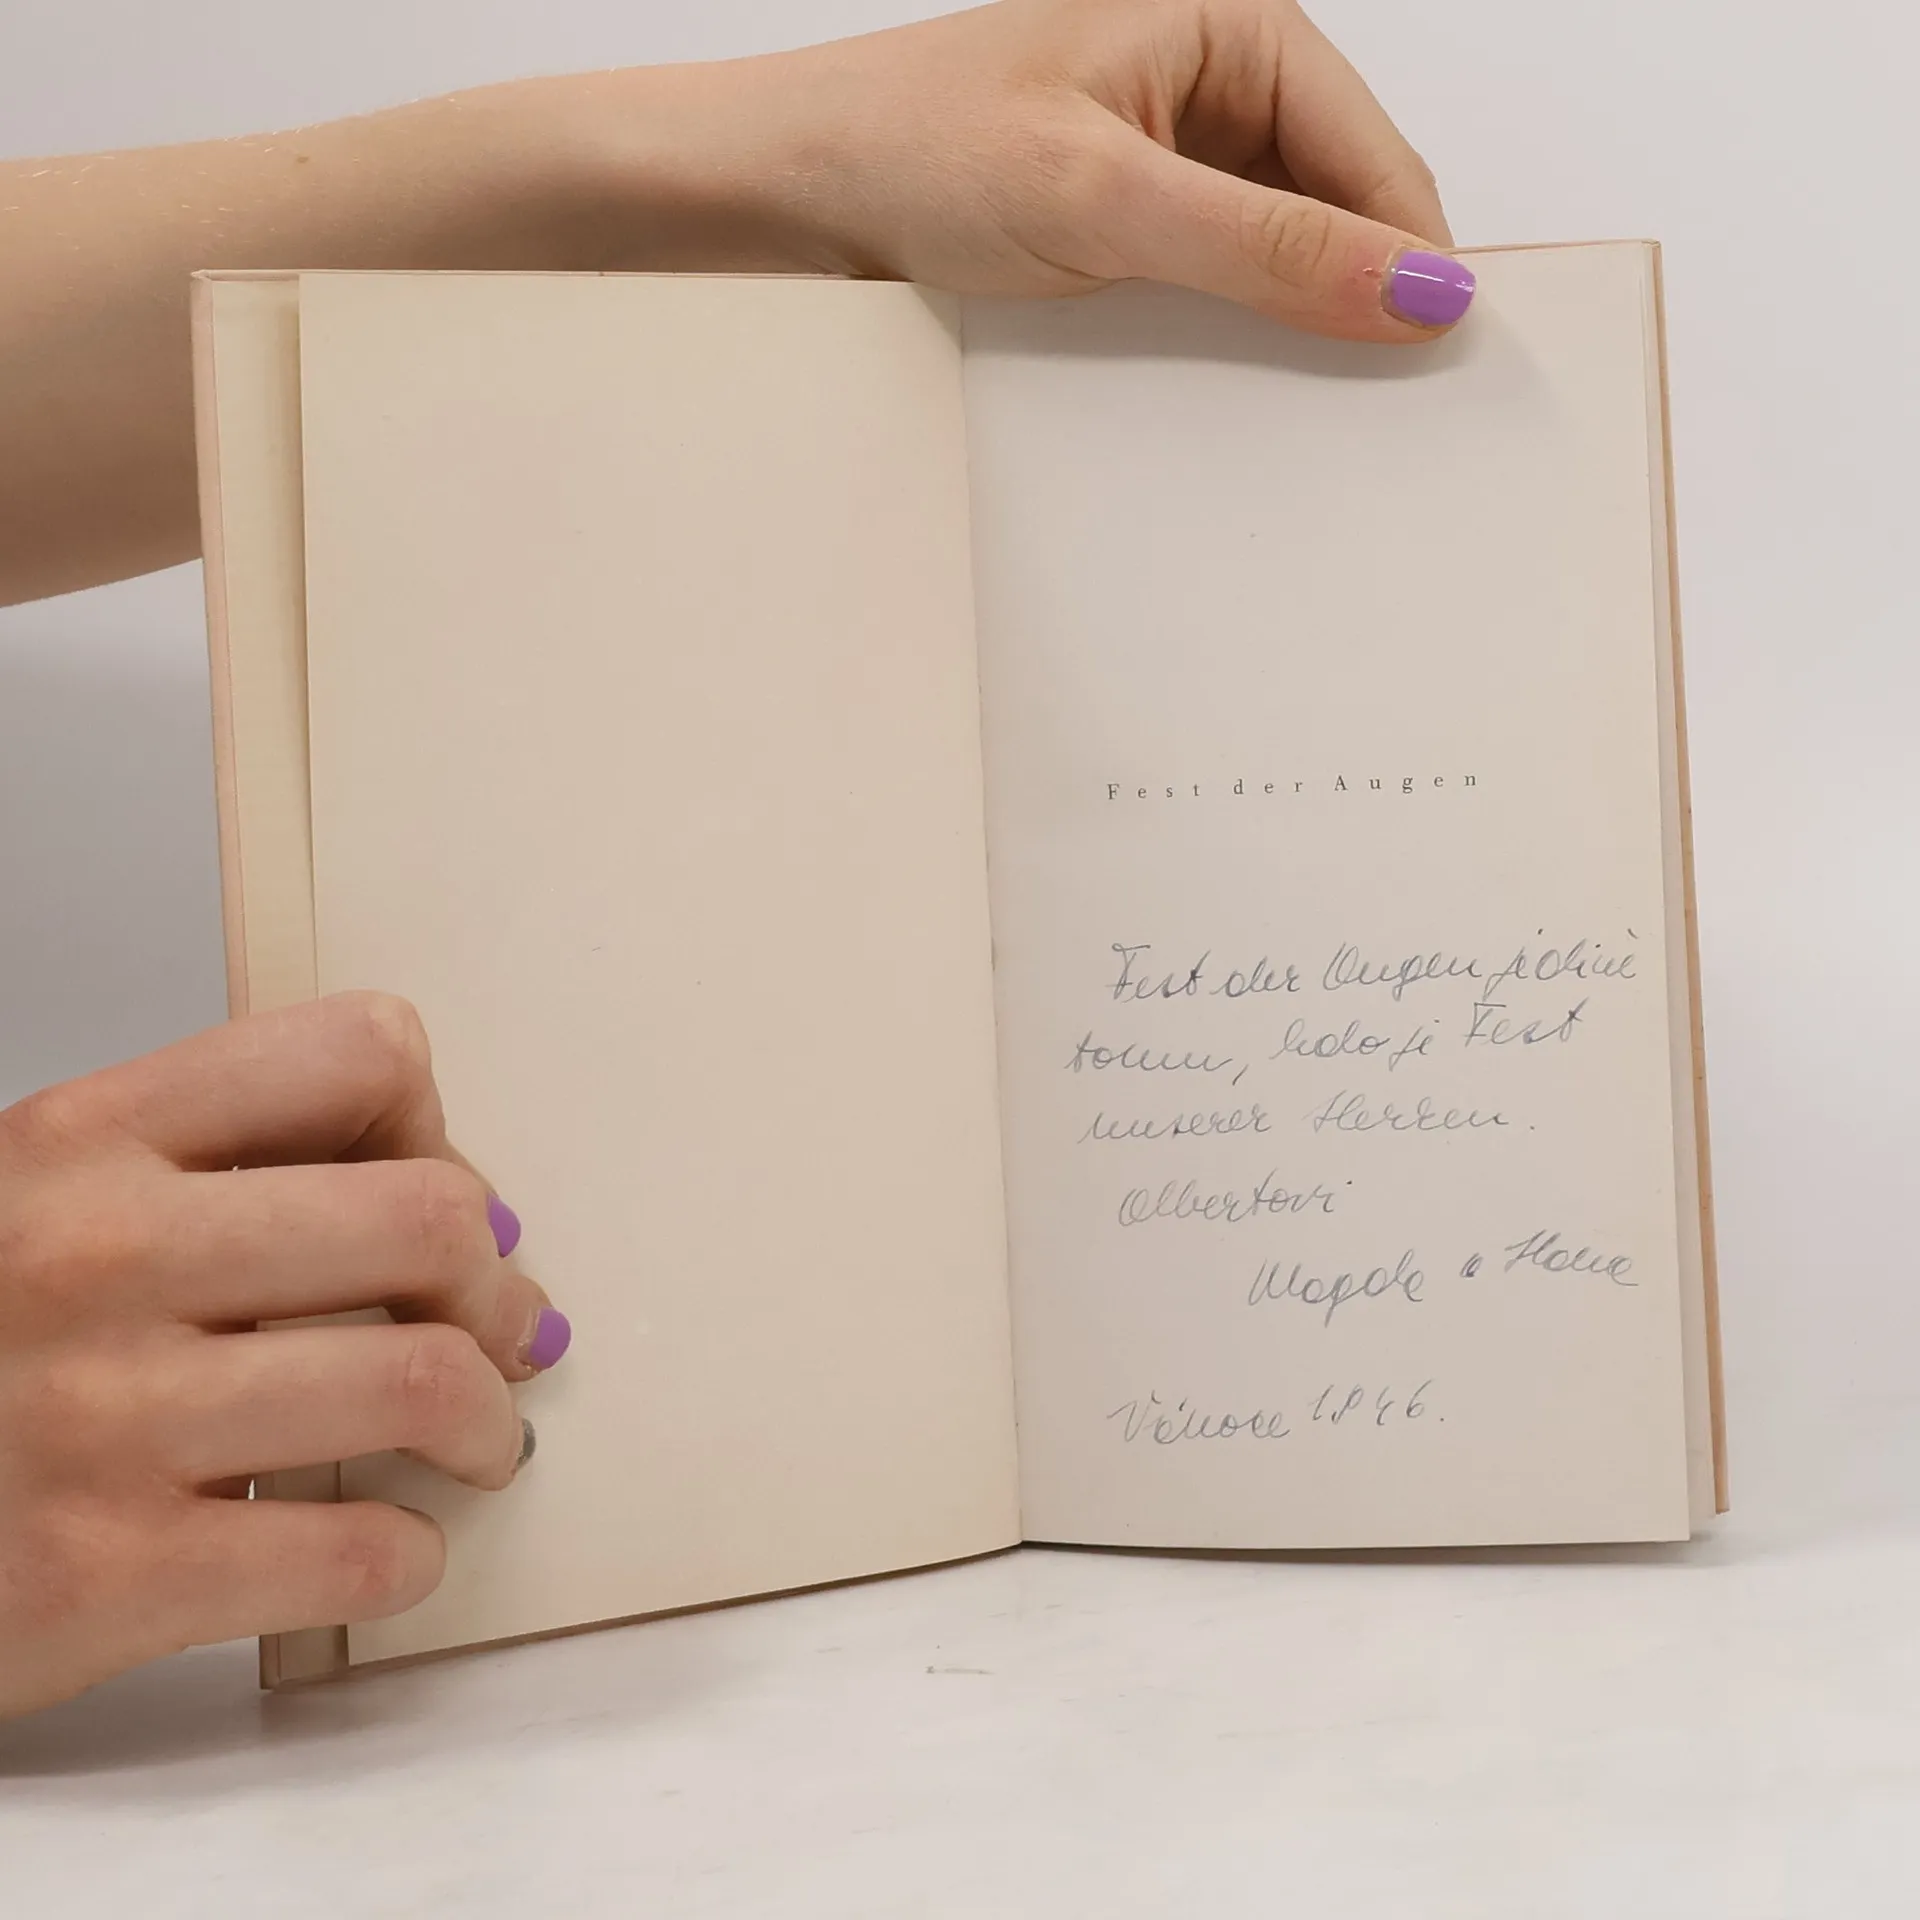 Fest der Augen
Fest der Augen jedině
tomu, kdo je Fest
unserer Herzen.
Albertovi
Magda a Hana
Vánoce 1946.